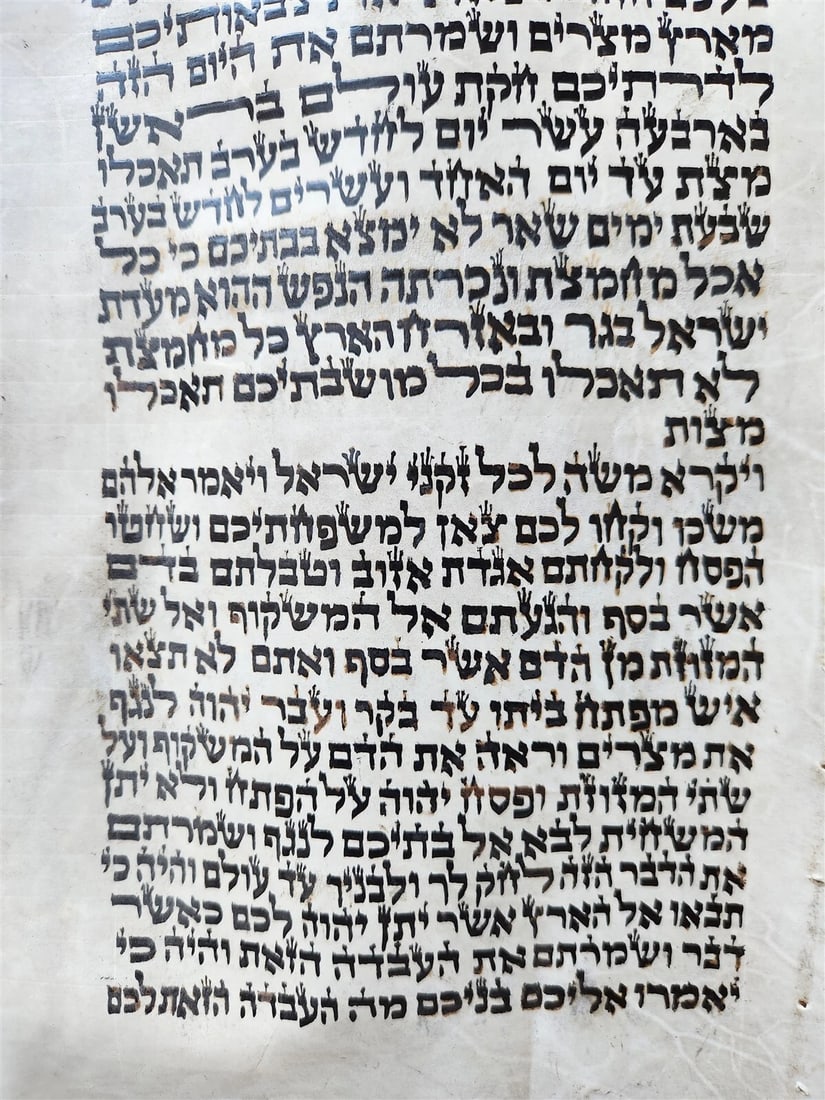 צבאותיכם
מארץ מצרים ושמרתם את היום הזה
לדרתיכם חקת עולם בראשן
בארבעה עשר יום לחדש בערב תאכלו
מצת עד יום האחד ועשרים לחדש בערב
שבעת ימים שאר לא ימצא בבתיכם כי כל
אכל מחמצת ונכרתה הנפש ההוא מעדת
ישראל בגר ובאזרח הארץ כל מחמצת
לא תאכלו בכל מושבתיכם תאכלו
מצות
ויקרא משה לכל זקני ישראל ויאמר אלהם
משכו וקחו לכם צאן למשפחתיכם ושחטו
הפסח ולקחתם אגדת אזוב וטבלתם בדם
אשר בסף והגעתם אל המשקוף ואל שתי
המזוזת מן הדם אשר בסף ואתם לא תצאו
איש מפתח ביתו עד בקר ועבר יהוה לנגף
את מצרים וראה את הדם על המשקוף ועל
שתי המזוזת ופסח יהוה על הפתח ולא יתן
המשחית לבא אל בתיכם לנגף ושמרתם
את הדבר הזה לחק לך ולבניך עד עולם והיה כי
תבאו אל הארץ אשר יתן יהוה לכם כאשר
דבר ושמרתם את העבדה הזאת והיה כי
יאמרו אליכם בניכם מה העבדה הזאת לכם